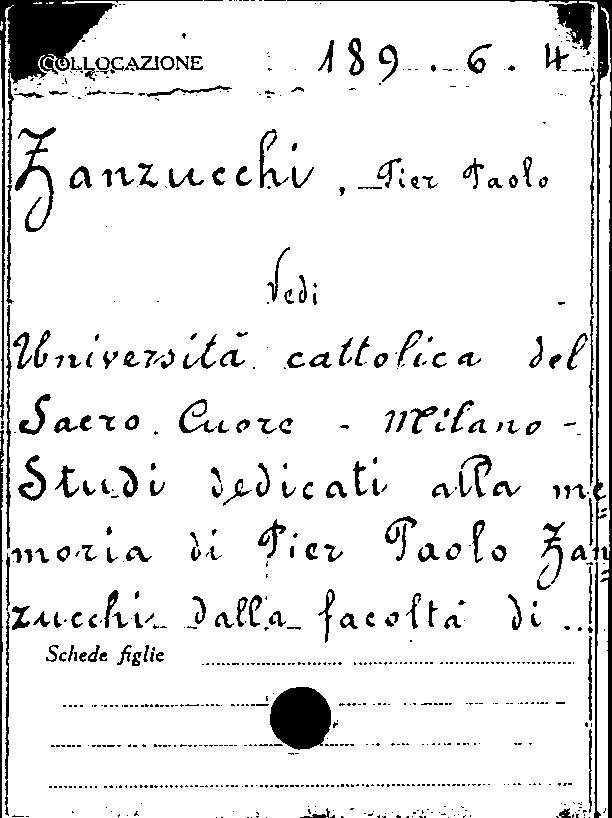 COLLOCAZIONE 189.6.4
Zanzucchi, Pier Paolo
Vedi
Università cattolica del
Sacro Cuore - Milano -
Studi dedicati alla me=
moria di Pier Paolo Zan=
zucchi dalla facoltà di ...
Schede figlie